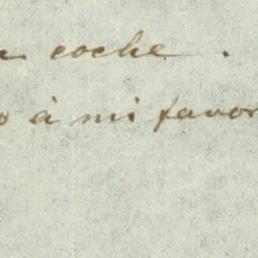 coche .
à mi favor